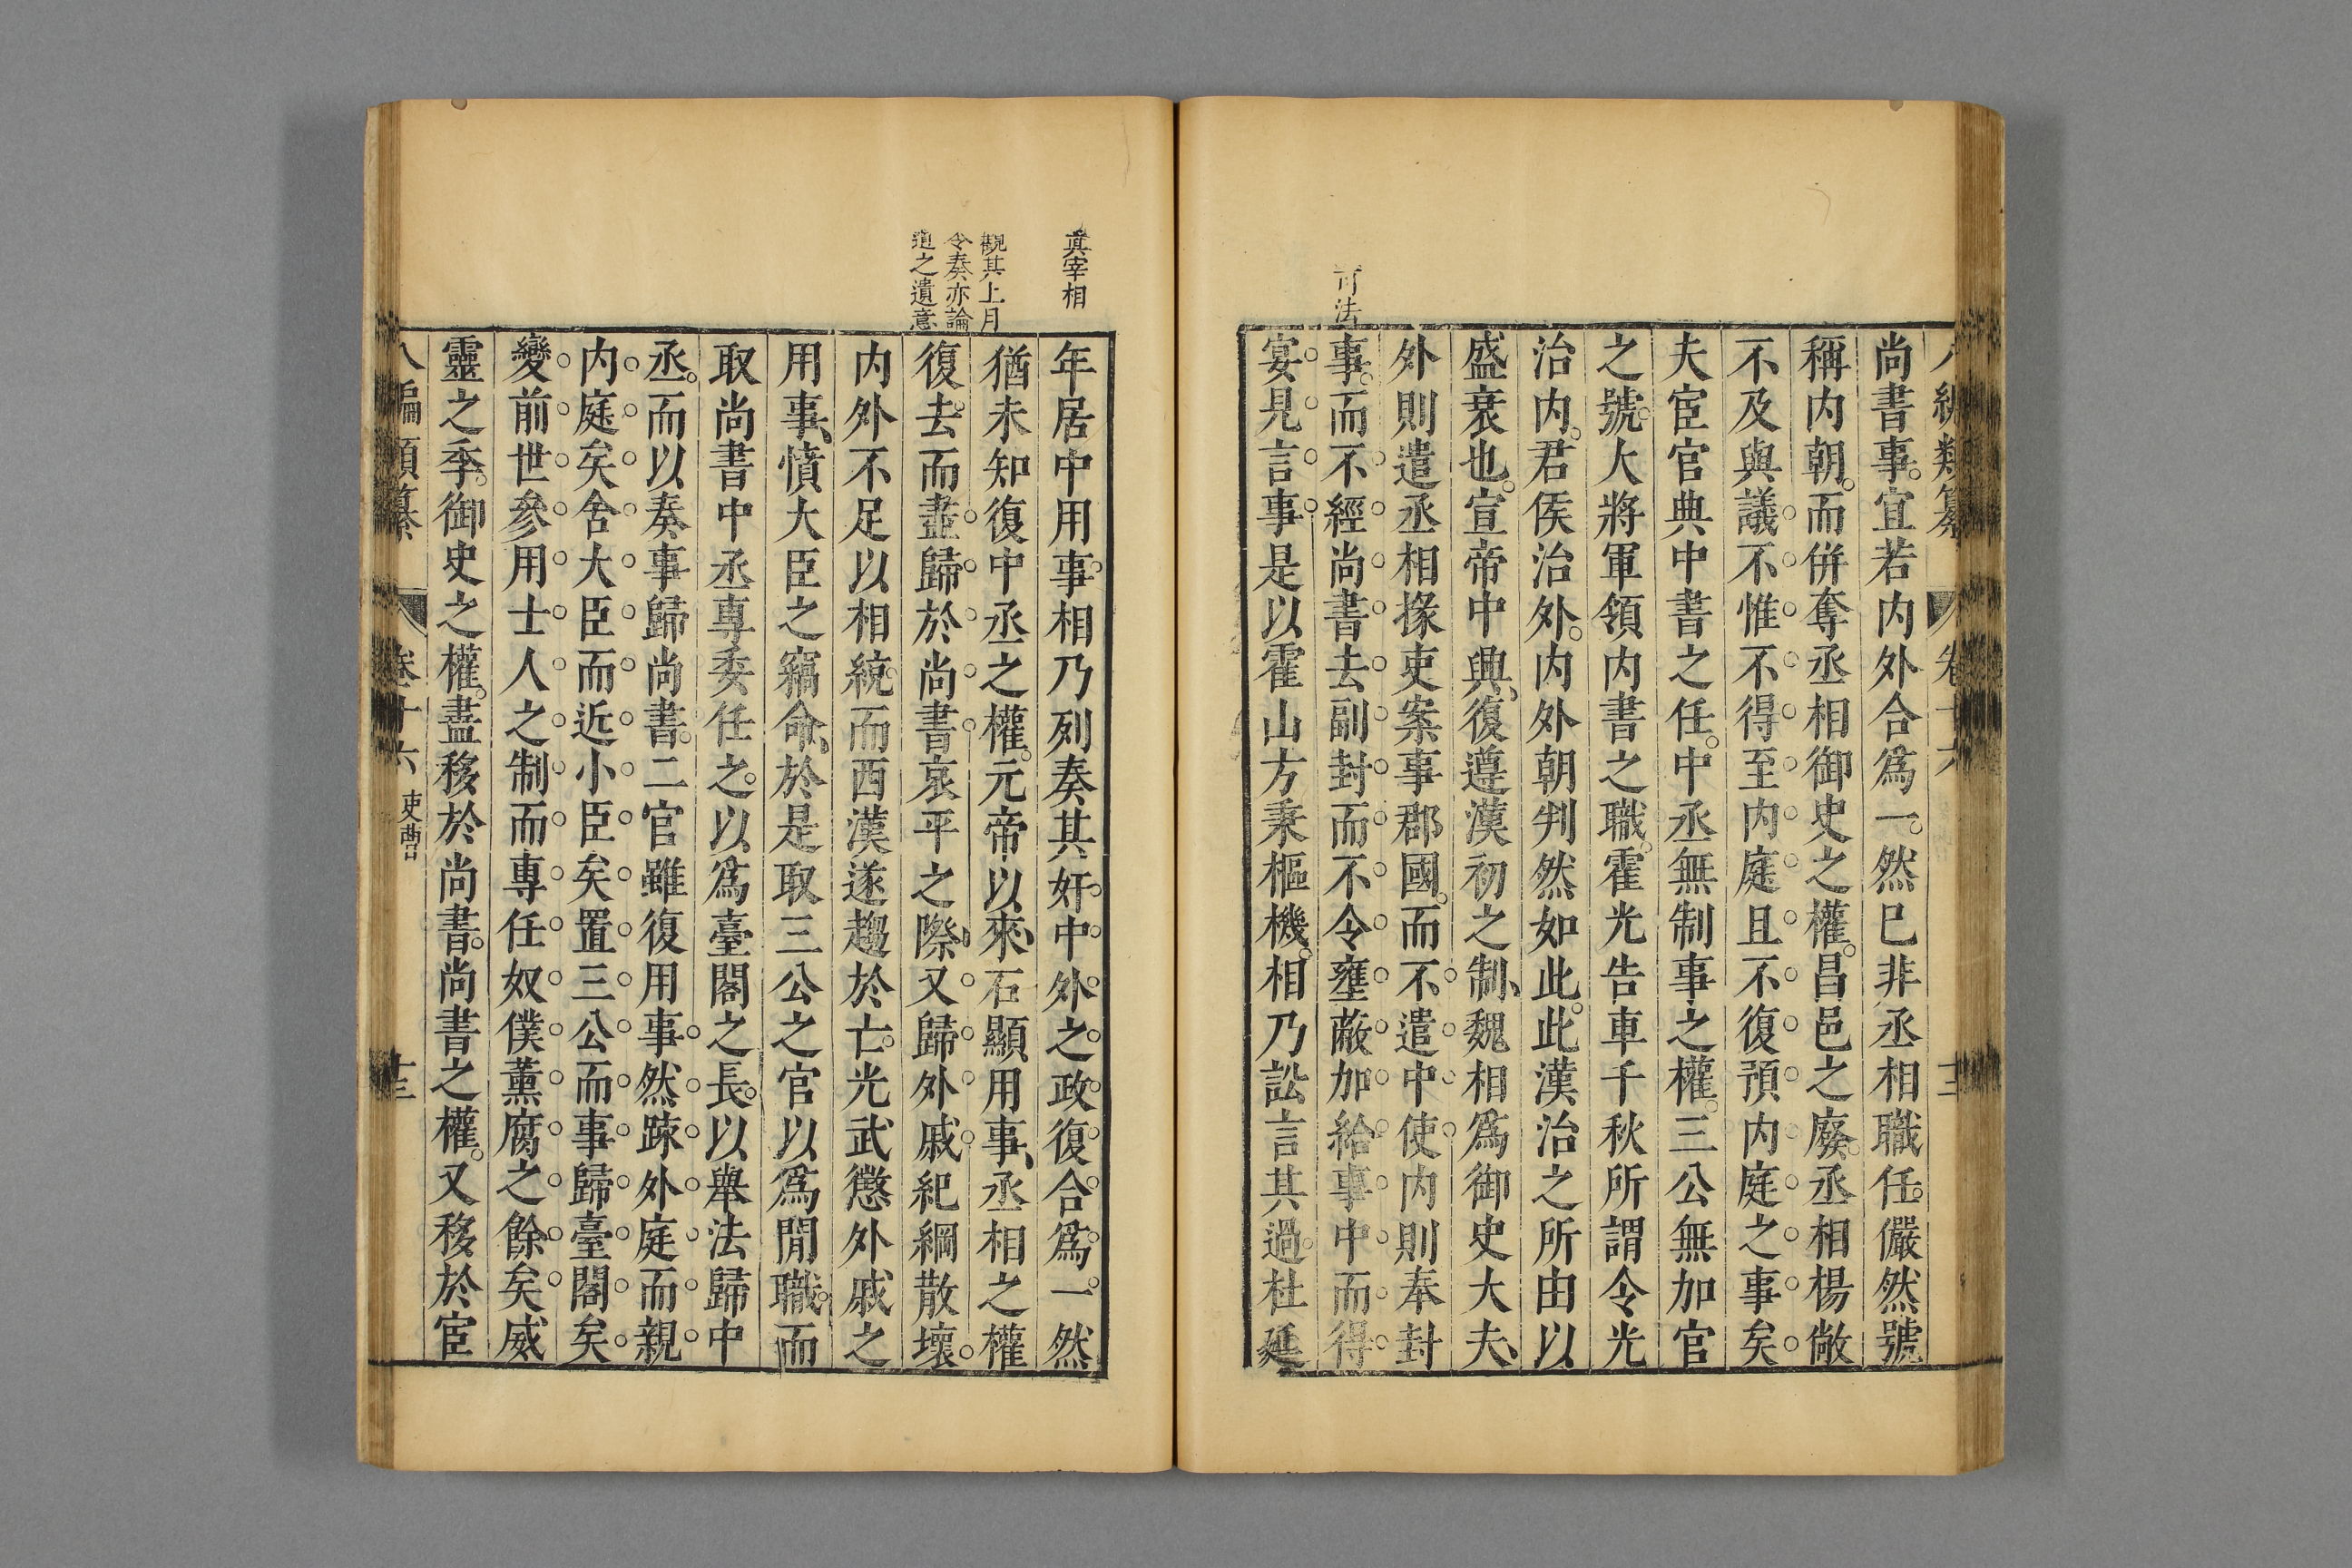 尚書事宜若内外合爲一然巳非丞相職任儼然號
稱内朝而併奪丞相御史之權昌邑之廢丞相楊敞
不及與議不惟不得至内庭且不復預内庭之事矣
夫宦官典中書之任中丞無制事之權三公無加官
之號大將軍領内書之職霍光告車千秋所謂令光
治内君侯治外内外朝判然如此此漢治之所由以
盛衰也宣帝中興復遵漢初之制魏相爲御史大夫
外則遣丞相掾吏案事郡國而不遣中使内則奉封
事而不經尚書去副封而不令壅蔽加給事中而得
宴見言事是以霍山方秉樞機相乃訟言其過杜延
可法
年居中用事相乃列奏其奸中外之政復合爲一然
猶未知復中丞之權元帝以來石顯用事丞相之權
復去而盡歸於尚書哀平之際又歸外戚紀綱散壞
内外不足以相統而西漢遂趨於亡光武懲外戚之
用事憤大臣之竊命於是取三公之官以爲閒職而
取尚書中丞専委任之以爲臺閣之長以舉法歸中
丞而以奏事歸尚書二官雖復用事然踈外庭而親
内庭矣舍大臣而近小臣矣置三公而事歸臺閣矣
變前世參用士人之制而専任奴僕薰腐之餘矣威
靈之季御史之權盡移於尚書尚書之權又移於宦
真宰相
觀其上月
令奏亦論
道之遺意
八編類纂 卷十六 吏曹 十三